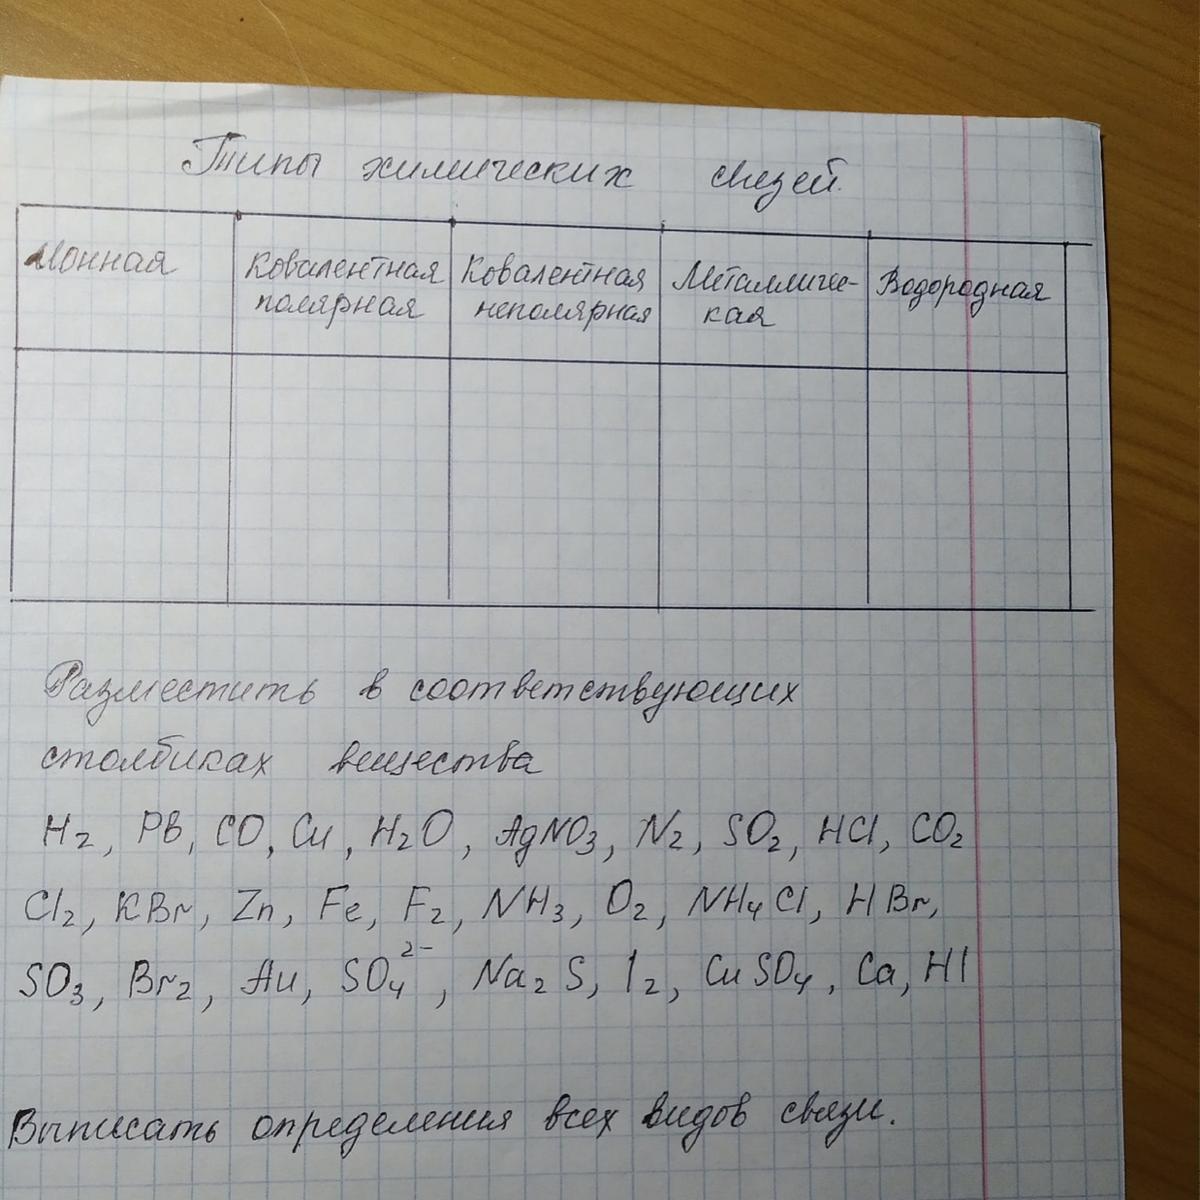 Типы химических связей.
Ионная
Ковалентная
полярная
Ковалентная
неполярная
Металличе-
кая
Водородная
Разместить в соответствующих
столбиках вещества
H₂, Pb, CO, Cu, H₂O, AgNO₃, N₂, SO₂, HCl, CO₂
Cl₂, KBr, Zn, Fe, F₂, NH₃, O₂, NH₄Cl, HBr,
SO₃, Br₂, Au, SO₄²⁻, Na₂S, I₂, CuSO₄, Ca, HI
Выписать определения всех видов связи.